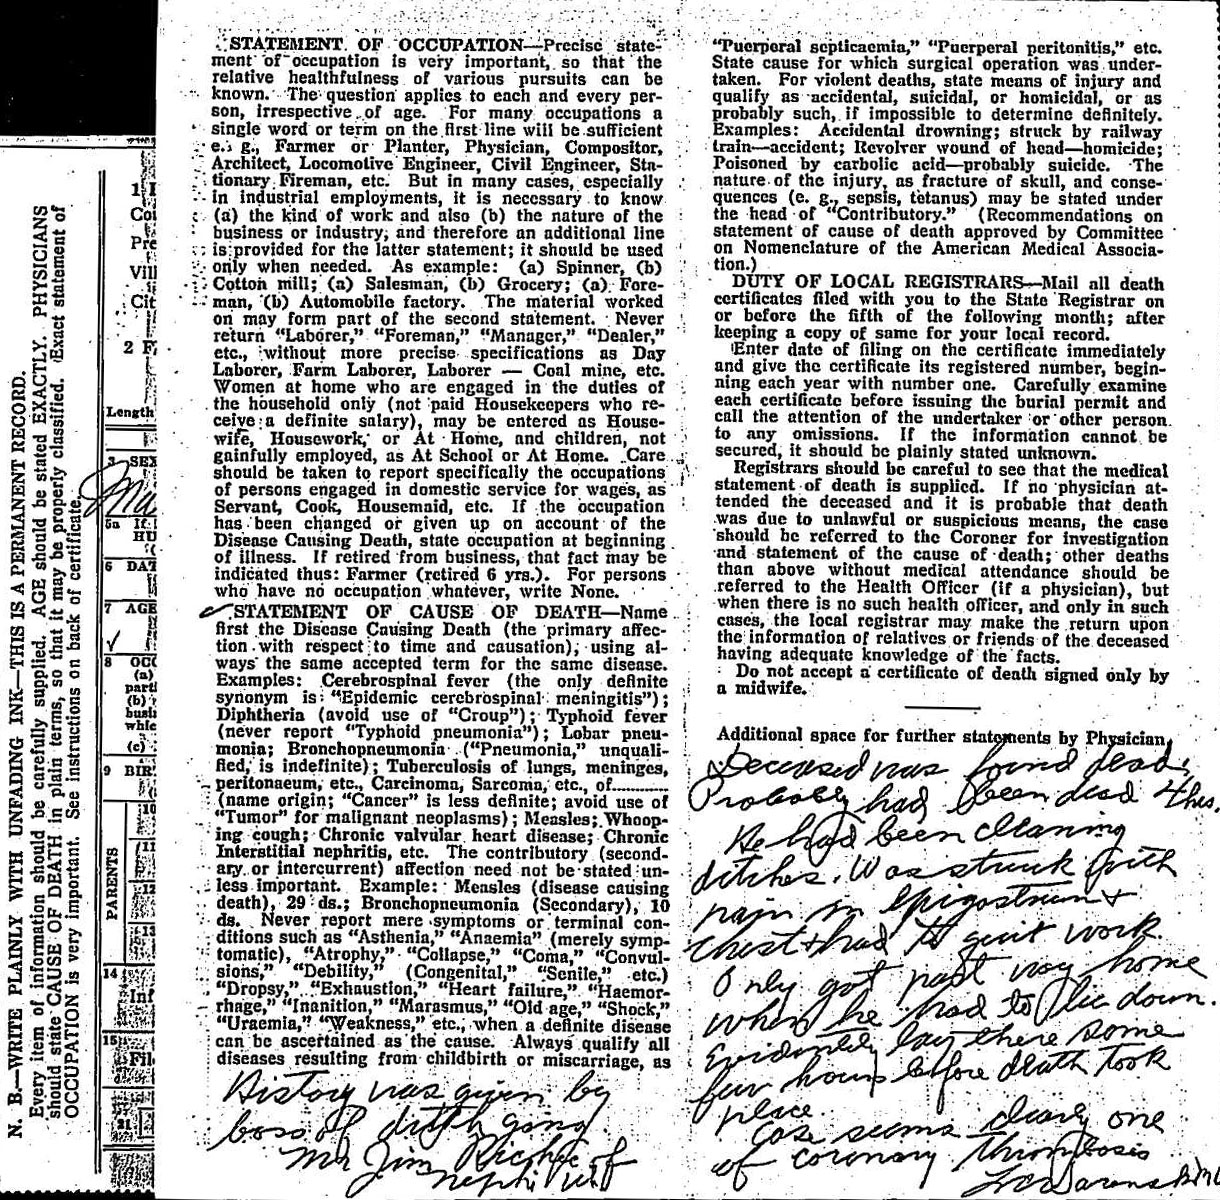 N. B.—WRITE PLAINLY WITH UNFADING INK—THIS IS A PERMANENT RECORD.
Every item of information should be carefully supplied. AGE should be stated EXACTLY. PHYSICIANS
should state CAUSE OF DEATH in plain terms, so that it may be properly classified. Exact statement of
OCCUPATION is very important. See instructions on back of certificate.
1
Pre
Vill
Cit
2 F
Length
3 SEX
5a If
HU
6 DAT
7 AGE
8 OCC
(a)
parti
(b)
busi
whic
(c)
9 BIR
PARENTS
10
11
12
13
14
Inf
15
Fil
21
STATEMENT OF OCCUPATION—Precise state-
ment of occupation is very important, so that the
relative healthfulness of various pursuits can be
known. The question applies to each and every per-
son, irrespective of age. For many occupations a
single word or term on the first line will be sufficient
e. g., Farmer or Planter, Physician, Compositor,
Architect, Locomotive Engineer, Civil Engineer, Sta-
tionary Fireman, etc. But in many cases, especially
in industrial employments, it is necessary to know
(a) the kind of work and also (b) the nature of the
business or industry; and therefore an additional line
is provided for the latter statement; it should be used
only when needed. As example: (a) Spinner, (b)
Cotton mill; (a) Salesman, (b) Grocery; (a) Fore-
man, (b) Automobile factory. The material worked
on may form part of the second statement. Never
return "Laborer," "Foreman," "Manager," "Dealer,"
etc., without more precise specifications as Day
Laborer, Farm Laborer, Laborer — Coal mine, etc.
Women at home who are engaged in the duties of
the household only (not paid Housekeepers who re-
ceive a definite salary), may be entered as House-
wife, Housework, or At Home, and children, not
gainfully employed, as At School or At Home. Care
should be taken to report specifically the occupations
of persons engaged in domestic service for wages, as
Servant, Cook, Housemaid, etc. If the occupation
has been changed or given up on account of the
Disease Causing Death, state occupation at beginning
of illness. If retired from business, that fact may be
indicated thus: Farmer (retired 6 yrs.). For persons
who have no occupation whatever, write None.
STATEMENT OF CAUSE OF DEATH—Name
first the Disease Causing Death (the primary affec-
tion with respect to time and causation), using al-
ways the same accepted term for the same disease.
Examples: Cerebrospinal fever (the only definite
synonym is "Epidemic cerebrospinal meningitis");
Diphtheria (avoid use of "Croup"); Typhoid fever
(never report "Typhoid pneumonia"); Lobar pneu-
monia; Bronchopneumonia ("Pneumonia," unquali-
fied, is indefinite); Tuberculosis of lungs, meninges,
peritonaeum, etc., Carcinoma, Sarcoma, etc., of............
(name origin; "Cancer" is less definite; avoid use of
"Tumor" for malignant neoplasms); Measles; Whoop-
ing cough; Chronic valvular heart disease; Chronic
Interstitial nephritis, etc. The contributory (second-
ary or intercurrent) affection need not be stated un-
less important. Example: Measles (disease causing
death), 29 ds.; Bronchopneumonia (Secondary), 10
ds. Never report mere symptoms or terminal con-
ditions such as "Asthenia," "Anaemia" (merely symp-
tomatic), "Atrophy," "Collapse," "Coma," "Convul-
sions," "Debility," (Congenital," "Senile," etc.)
"Dropsy," "Exhaustion," "Heart failure," "Haemor-
rhage," "Inanition," "Marasmus," "Old age," "Shock,"
"Uraemia," "Weakness," etc., when a definite disease
can be ascertained as the cause. Always qualify all
diseases resulting from childbirth or miscarriage, as
History was given by
boss of ditch gang
Mr Jim Richie of
Nephi Ut
"Puerperal septicaemia," "Puerperal peritonitis," etc.
State cause for which surgical operation was under-
taken. For violent deaths, state means of injury and
qualify as accidental, suicidal, or homicidal, or as
probably such, if impossible to determine definitely.
Examples: Accidental drowning; struck by railway
train—accident; Revolver wound of head—homicide;
Poisoned by carbolic acid—probably suicide. The
nature of the injury, as fracture of skull, and conse-
quences (e. g., sepsis, tetanus) may be stated under
the head of "Contributory." (Recommendations on
statement of cause of death approved by Committee
on Nomenclature of the American Medical Associa-
tion.)
DUTY OF LOCAL REGISTRARS—Mail all death
certificates filed with you to the State Registrar on
or before the fifth of the following month; after
keeping a copy of same for your local record.
Enter date of filing on the certificate immediately
and give the certificate its registered number, begin-
ning each year with number one. Carefully examine
each certificate before issuing the burial permit and
call the attention of the undertaker or other person
to any omissions. If the information cannot be
secured, it should be plainly stated unknown.
Registrars should be careful to see that the medical
statement of death is supplied. If no physician at-
tended the deceased and it is probable that death
was due to unlawful or suspicious means, the case
should be referred to the Coroner for investigation
and statement of the cause of death; other deaths
than above without medical attendance should be
referred to the Health Officer (if a physician), but
when there is no such health officer, and only in such
cases, the local registrar may make the return upon
the information of relatives or friends of the deceased
having adequate knowledge of the facts.
Do not accept a certificate of death signed only by
a midwife.
Additional space for further statements by Physician.
Deceased was found dead.
Probably had been dead 4 hrs.
He had been cleaning
ditches. Was struck with
pain in Epigastrium &
chest & had to quit work
Only got part way home
when he had to lie down.
Evidently lay there some
few hours before death took
place.
Case seems clearly one
of coronary thrombosis